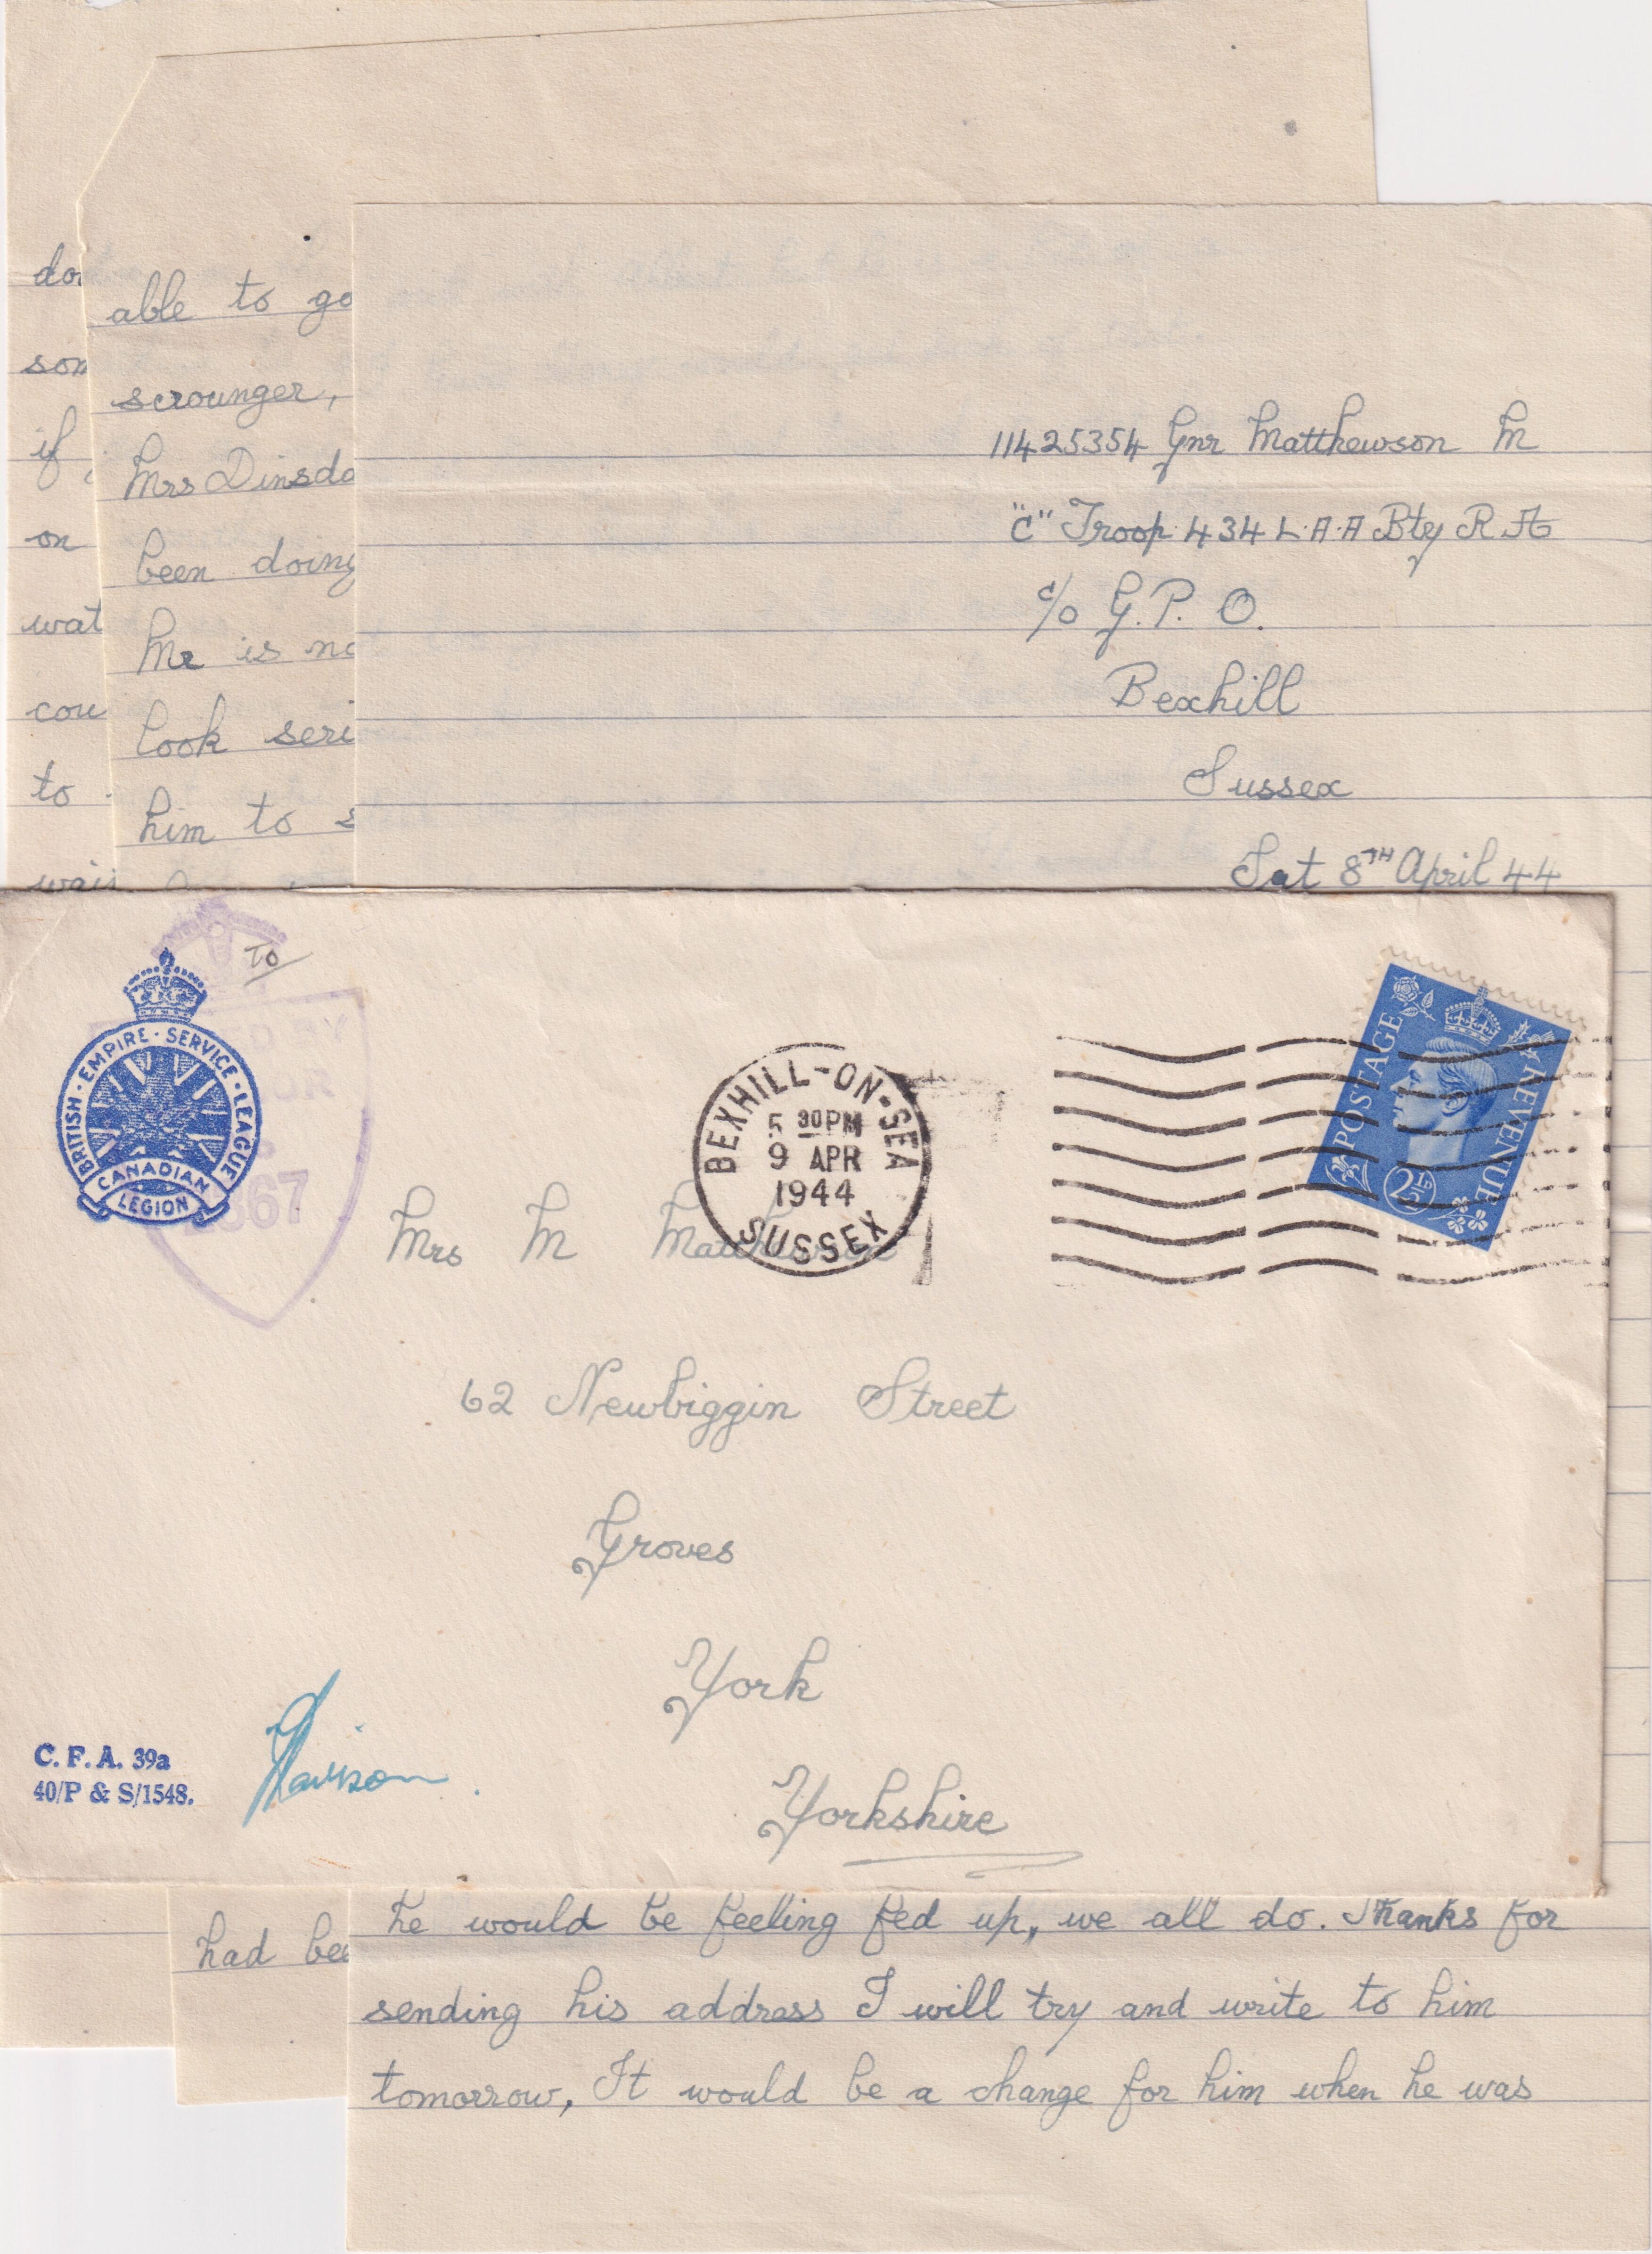 do
som
if
on
wat
cou
to
wais
able to go
scrounger,
Mrs Dinsda
been doing
Mr is no
look seri
him to s
11425354 Gnr Matthewson M
"C" Troop 434 L.A.A Bty R.A
c/o G.P.O.
Bexhill
Sussex
Sat 8TH April 44
TO
BRITISH · EMPIRE · SERVICE · LEAGUE
CANADIAN
LEGION
67
BEXHILL-ON-SEA
5 30PM
9 APR
1944
SUSSEX
POSTAGE
REVENUE
2½D
Mrs M Matthewson
62 Newbiggin Street
Groves
York
Yorkshire
C. F. A. 39a
40/P & S/1548.
had bee
he would be feeling fed up, we all do. Thanks for
sending his address I will try and write to him
tomorrow, It would be a change for him when he was